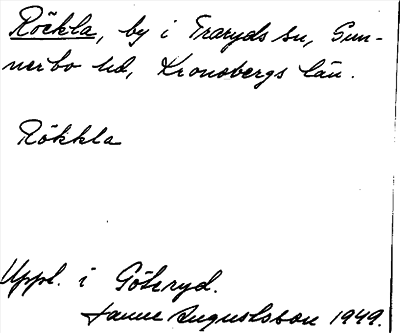 Röckla, by i Traryds sn, Sun-
nerbo hd, Kronobergs län.
Rökkla
Uppl. i Göteryd.
Janne Augustsson 1949.